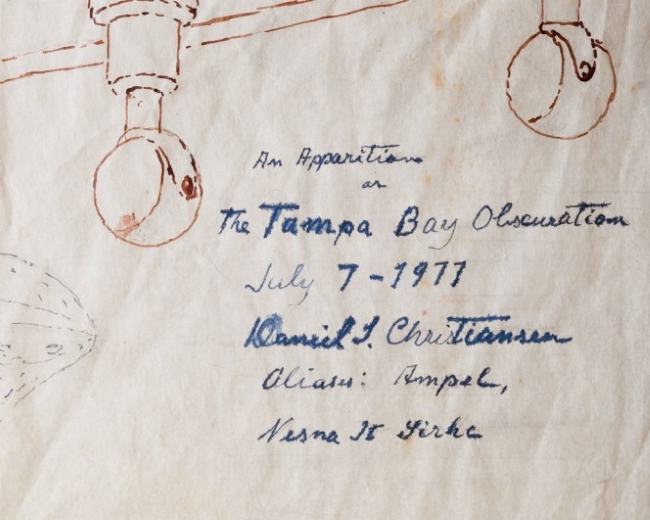 An Apparition
or
The Tampa Bay Obscuration
July 7-1977
Daniel J. Christiansen
Aliases: Ampel,
Vesna It